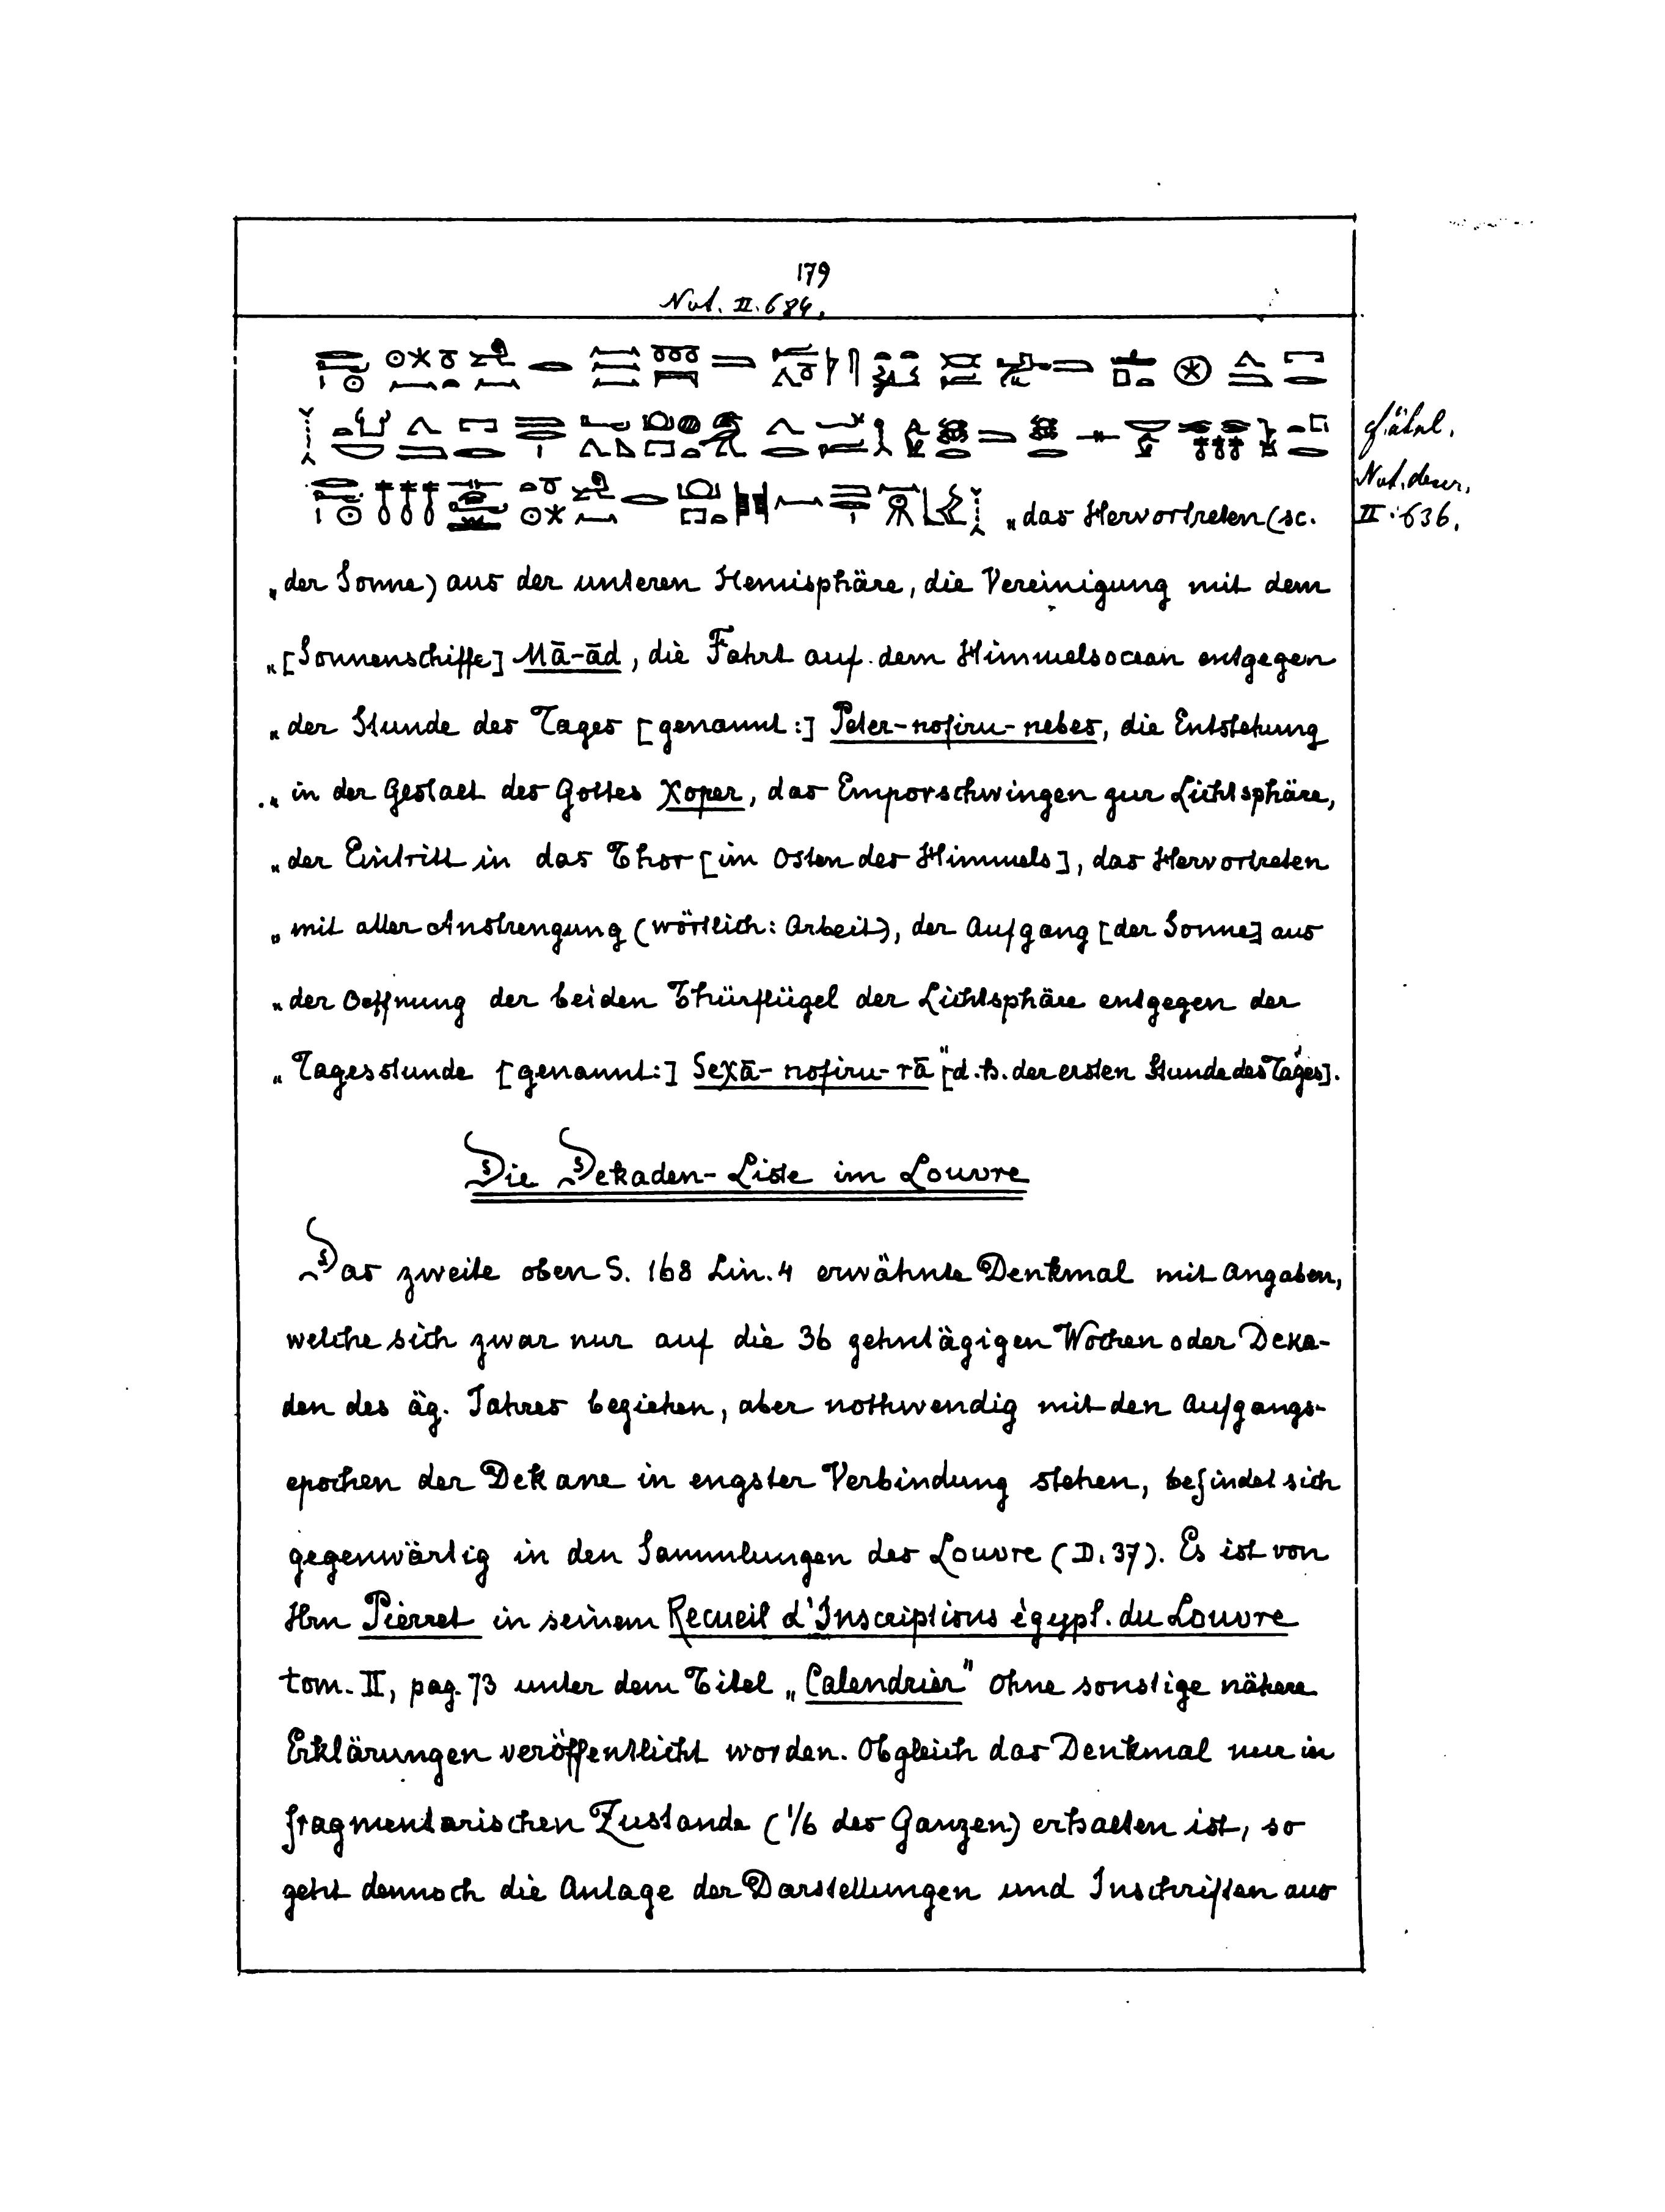 179
Not. II. 684.
„das Hervortreten (sc.
„der Sonne) aus der unteren Hemisphäre, die Vereinigung mit dem
„[Sonnenschiffe] Mā-ād, die Fahrt auf dem Himmelsocean entgegen
„der Stunde des Tages [genannt:] Peter-nofiru-nebes, die Entstehung
„in der Gestalt des Gottes Xoper, das Emporschwingen zur Lichtsphäre,
„der Eintritt in das Thor [im Osten des Himmels], das Hervortreten
„mit aller Anstrengung (wörtlich: Arbeit), der Aufgang [der Sonne] aus
„der Oeffnung der beiden Thürflügel der Lichtsphäre entgegen der
„Tagesstunde [genannt:] Seχā-nofiru-rā" [d.h. der ersten Stunde des Tages].
Not. descr.
II. 636.
Die Dekaden-Liste im Louvre
Das zweite oben S. 168 Lin. 4 erwähnte Denkmal mit Angaben,
welche sich zwar nur auf die 36 zehntägigen Wochen oder Deka-
den des äg. Jahres beziehen, aber nothwendig mit den Aufgangs-
epochen der Dekane in engster Verbindung stehen, befindet sich
gegenwärtig in den Sammlungen des Louvre (D. 37). Es ist von
Hrn Pierret in seinem Recueil d'Inscriptions égypt. du Louvre
tom. II, pag. 73 unter dem Titel „Calendrier" ohne sonstige nähere
Erklärungen veröffentlicht worden. Obgleich das Denkmal nur in
fragmentarischen Zustande (1/6 des Ganzen) erhalten ist, so
geht dennoch die Anlage der Darstellungen und Inschriften aus